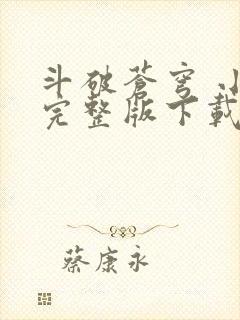 斗破苍穹
完整版下载
蔡康永